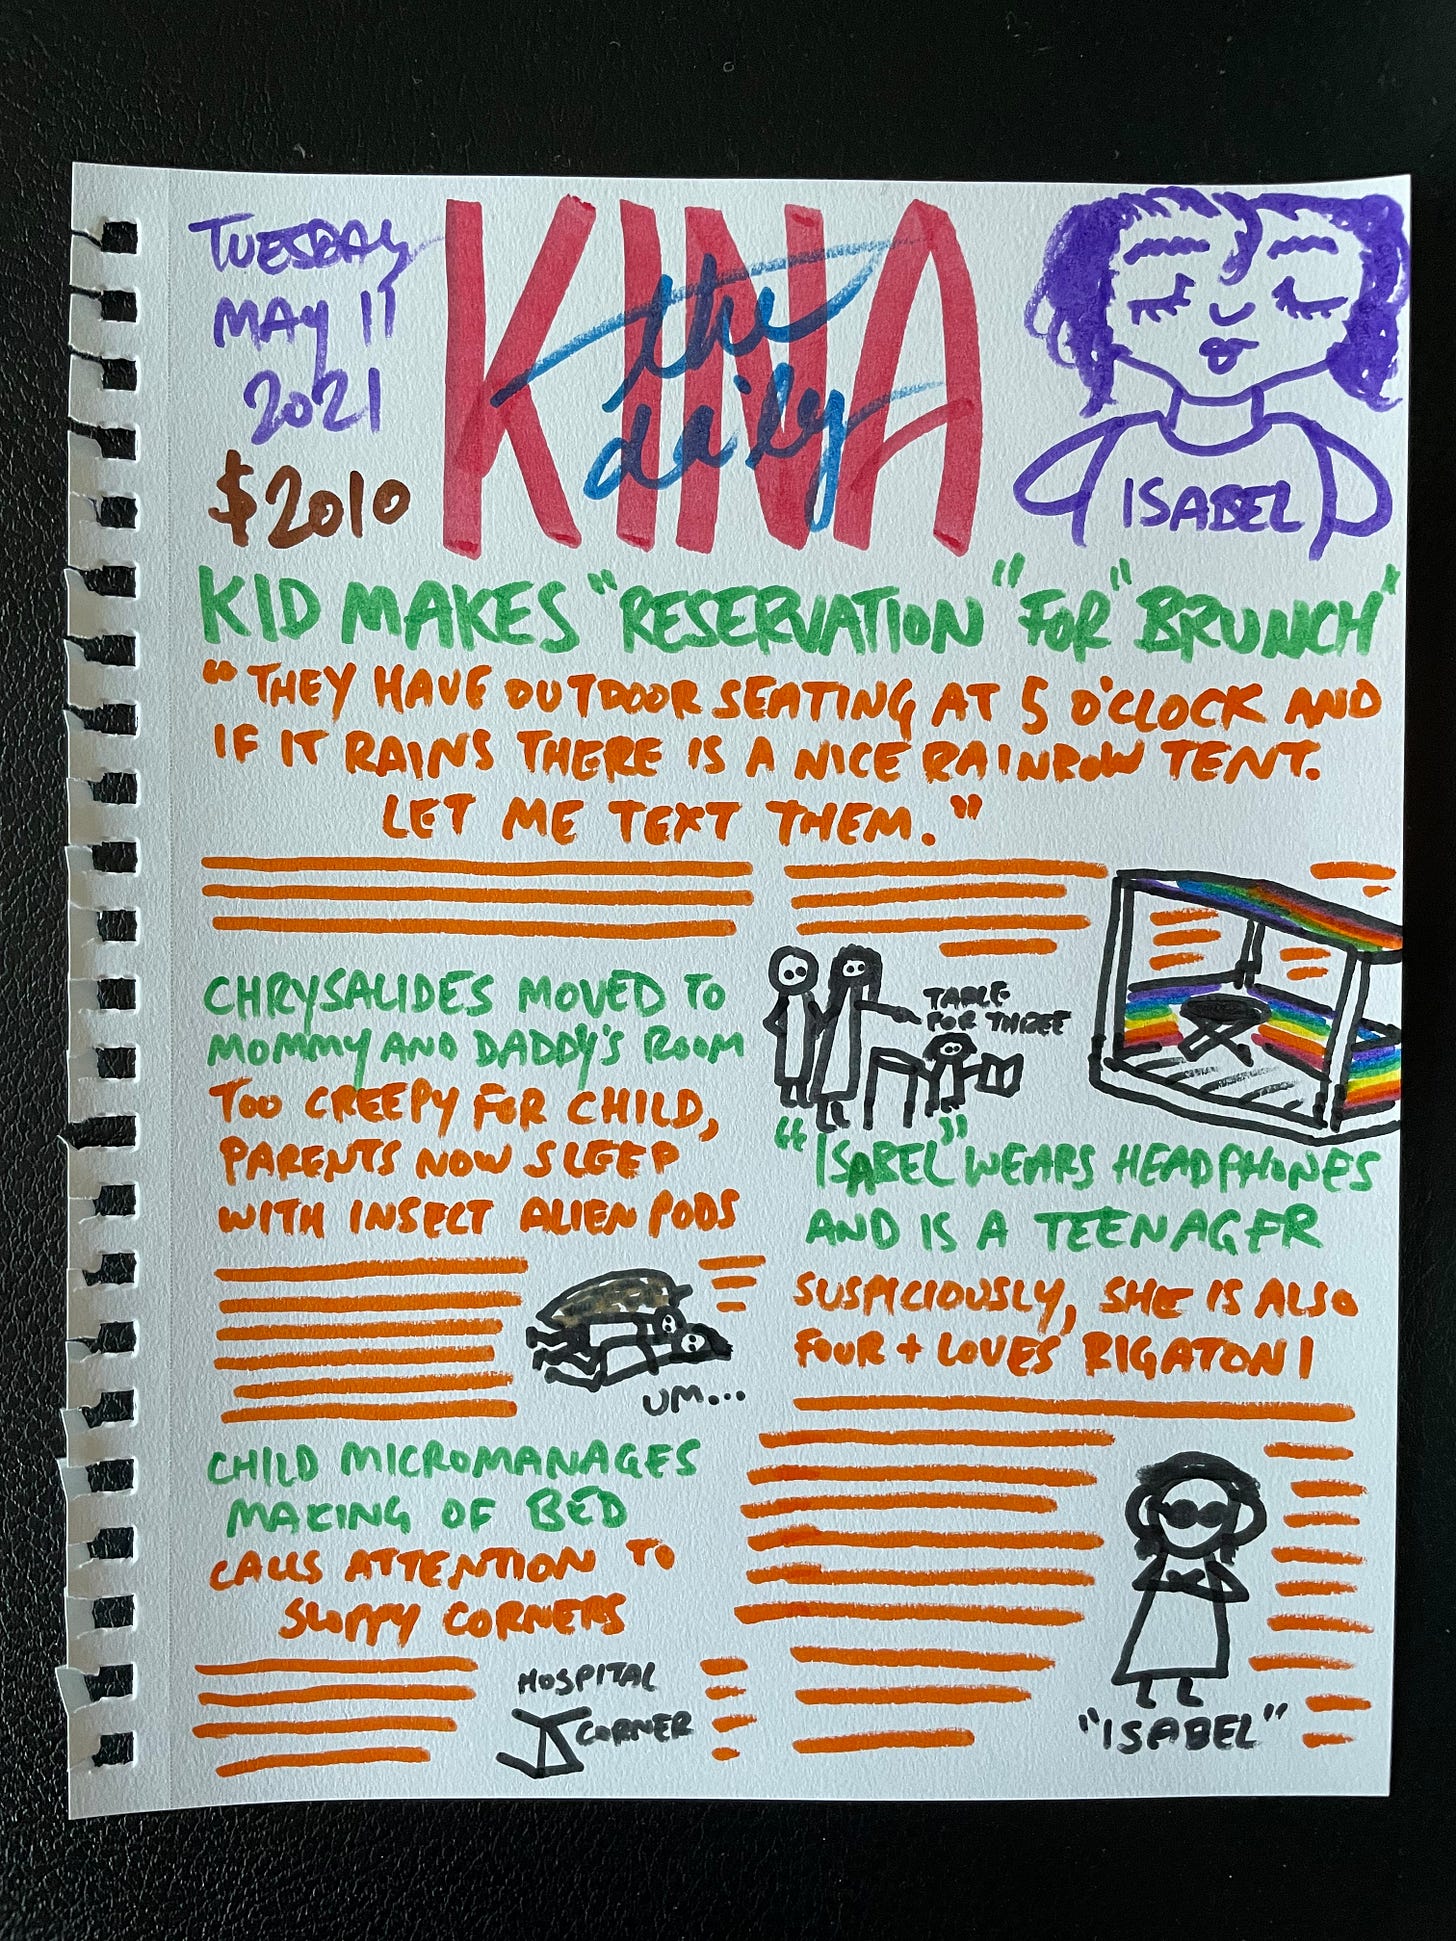 TUESDAY
MAY 11
2021
$2010
the
daily
KINA
ISABEL
KID MAKES "RESERVATION" "FOR" "BRUNCH"
"THEY HAVE OUTDOOR SEATING AT 5 O'CLOCK AND
IF IT RAINS THERE IS A NICE RAINBOW TENT.
LET ME TEXT THEM."
CHRYSALIDES MOVED TO
MOMMY AND DADDY'S ROOM
TOO CREEPY FOR CHILD,
PARENTS NOW SLEEP
WITH INSECT ALIEN PODS
UM...
CHILD MICROMANAGES
MAKING OF BED
CALLS ATTENTION TO
SLOPPY CORNERS
HOSPITAL
CORNER
TABLE
FOR THREE
"ISABEL" WEARS HEADPHONES
AND IS A TEENAGER
SUSPICIOUSLY, SHE IS ALSO
FOUR + LOVES RIGATONI
"ISABEL"